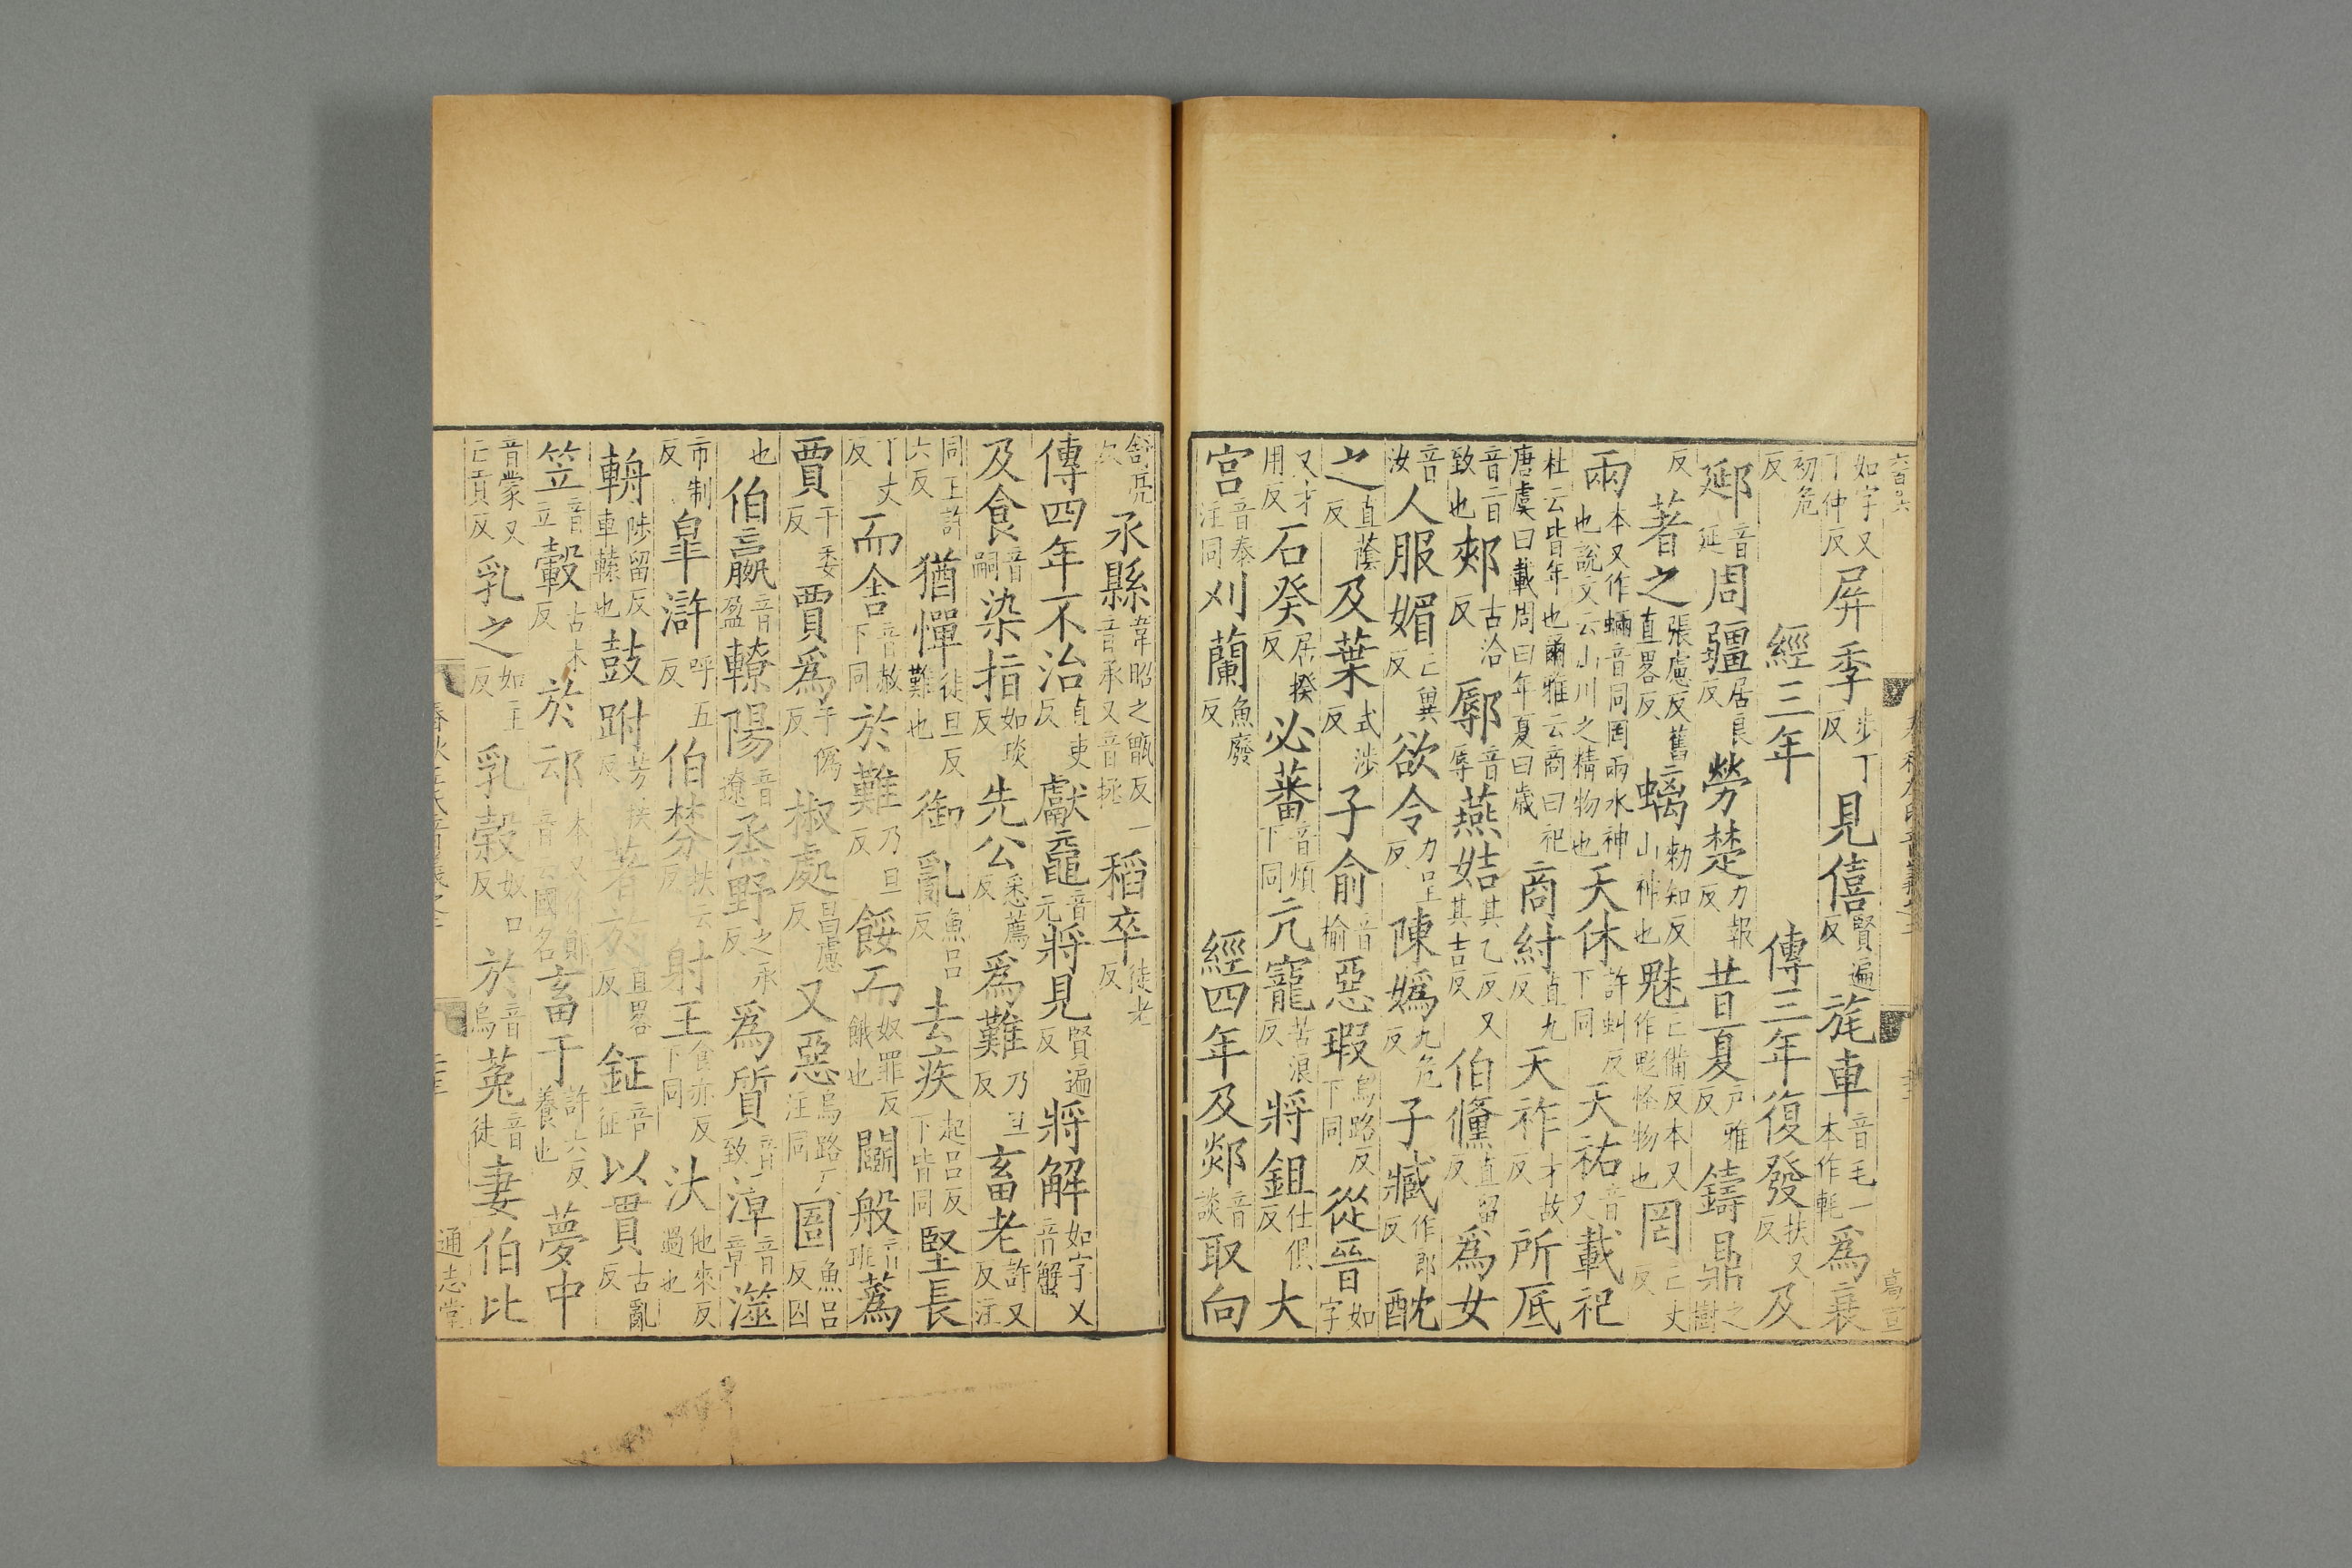 如字又丁仲反屏季步丁反見僖賢遍反旄車音毛一本作軞爲衰
初危反經三年傳三年復發扶又反及
郔音延周疆居良反勞楚力報反昔夏戶雅反鑄鼎之樹
反著之張慮反舊直畧反螭勑知反山神也魅亡備反本又作鬽怪物也罔亡丈反
兩本又作蜽音同罔兩水神也說文云山川之精物也天休許虯反下同天祐音又載祀
杜云皆年也爾雅云商曰祀唐虞曰載周曰年夏曰歲商紂直九反天祚才故反所厎
音旨致也郟古洽反鄏音辱燕姞其乙反又其吉反伯儵直留反爲女
音汝人服媚亡冀反欲令力呈反陳嬀九危反子臧作郎反酖
之直蔭反及葉式涉反子俞音榆惡瑕烏路反下同從晉如字
又才用反石癸居揆反必蕃音煩下同亢寵苦浪反將鉏仕俱反大
宮音泰注同刈蘭魚廢反經四年及郯音談取向
舒亮反承縣韋昭之甑反一音承又音拯稻卒徒老反
傳四年不治直吏反獻黿音元將見賢遍反將解如字又音蟹
及食音嗣染指如琰反先公悉薦反爲難乃旦反畜老許又反注
同王許六反猶憚徒旦反難也御亂魚呂反去疾起呂反下皆同堅長
丁丈反而舍音赦下同於難乃旦反餒而奴罪反餓也鬭般音班蔿
賈于委反賈爲于僞反椒處昌慮反又惡烏路反注同圄魚呂反囚
也伯嬴音盈轑陽音遼烝野之承反爲質音致漳音章澨
市制反皐滸呼五反伯棼扶云反射王食亦反下同汏他來反過也
輈陟留反車轅也鼓跗芳扶反著於直畧反鉦音征以貫古亂反
笠音立轂古木反於䢵本又作鄖音云國名畜于許六反養也夢中
音蒙又亡貢反乳之如主反乳穀奴口反於音烏菟音徒妻伯比
通志堂